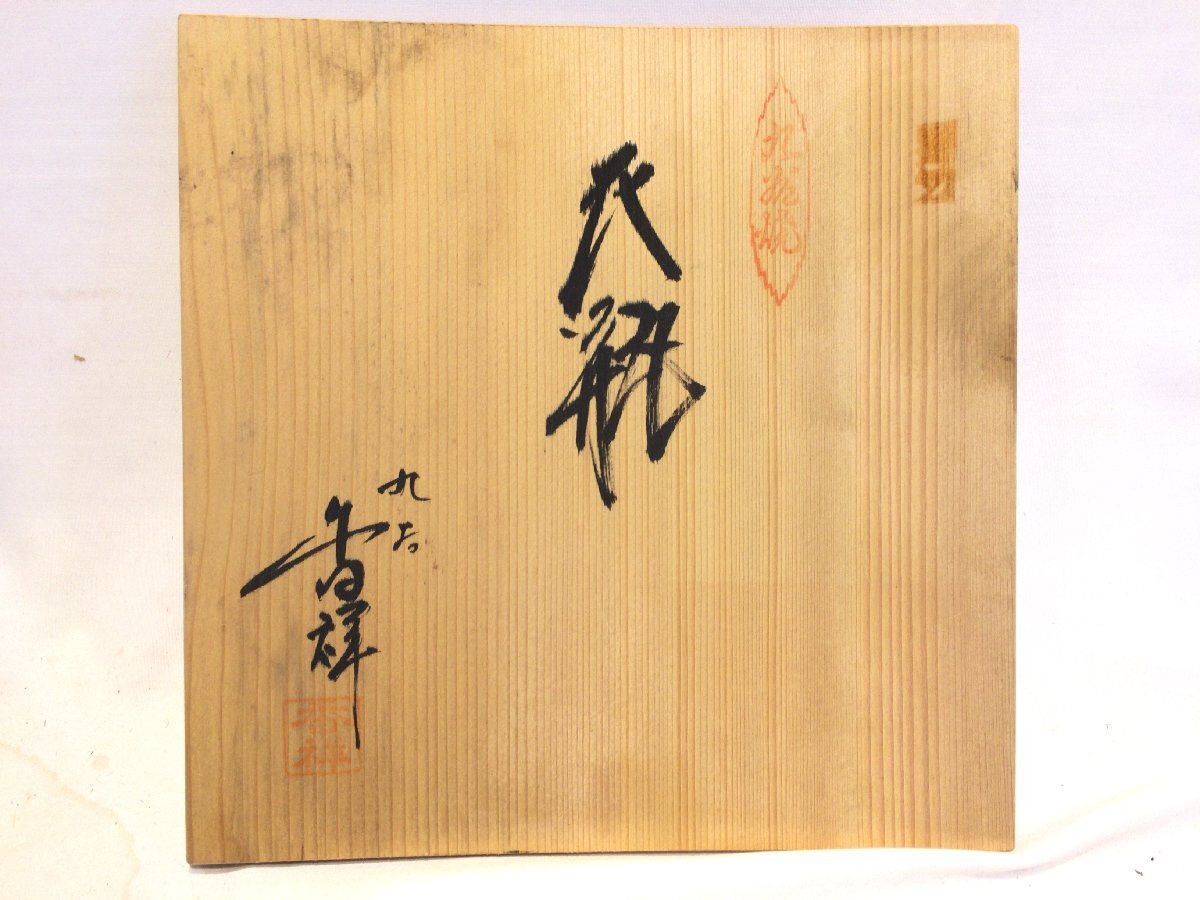 九谷焼
花瓶
九谷
香祥
香祥